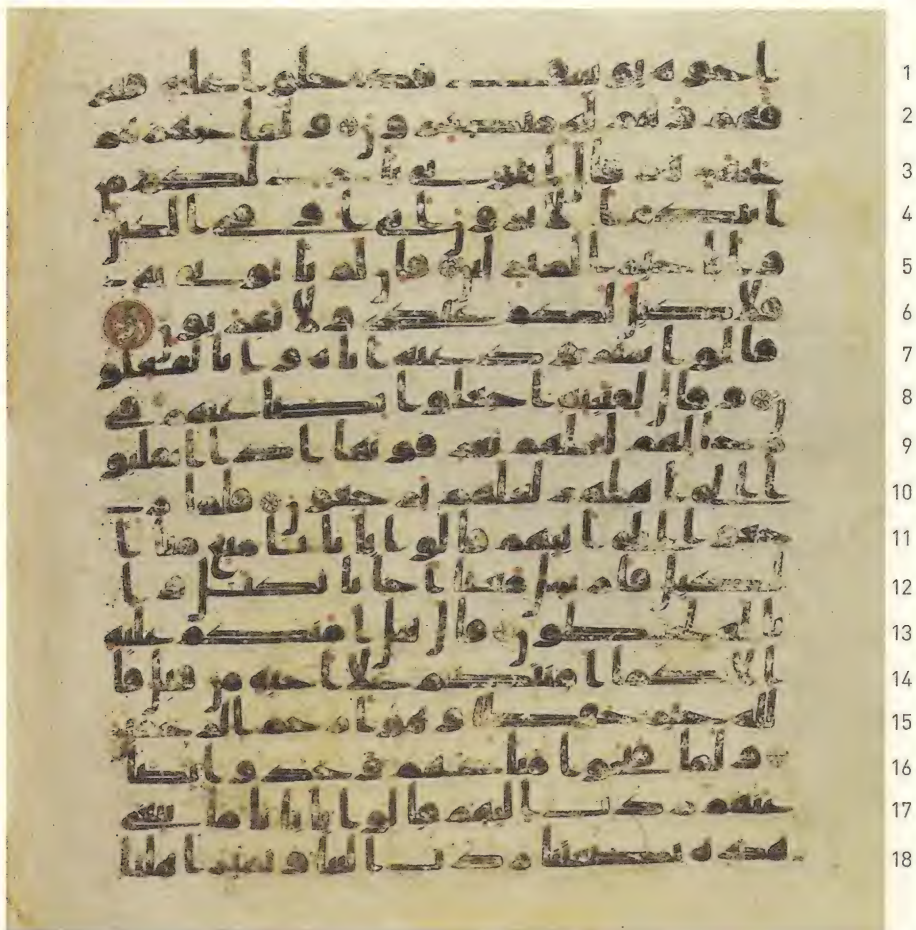 اخوه يوسف فدخلوا عليه فعر 1
فهم وهم له منكرون ولما جهزهم 2
بجهازهم قال ائتوني باخ لكم م 3
ن ابيكم الا ترون اني اوفي الكيل 4
وانا خير المنزلين فان لم تاتوني به 5
فلا كيل لكم عندي ولا تقربون 6
قالوا سنرود عنه اباه وانا لفعلو 7
ن وقال لفتينه اجعلوا بضعتهم في 8
رحالهم لعلهم يعرفونها اذا انقلبو 9
ا الى اهلهم لعلهم يرجعون فلما ر 10
جعوا الى ابيهم قالوا يابانا منع منا ا 11
لكيل فارسل معنا اخانا نكتل وا 12
نا له لحفظون قال هل امنكم عليه 13
الا كما امنتكم على اخيه من قبل فا 14
لله خير حفظا وهو ارحم الرحمين 15
ولما فتحوا متعهم وجدوا بضا 16
عتهم ردت اليهم قالوا يابانا ما نبغي 17
هذه بضعتنا ردت الينا ونمير اهلنا 18